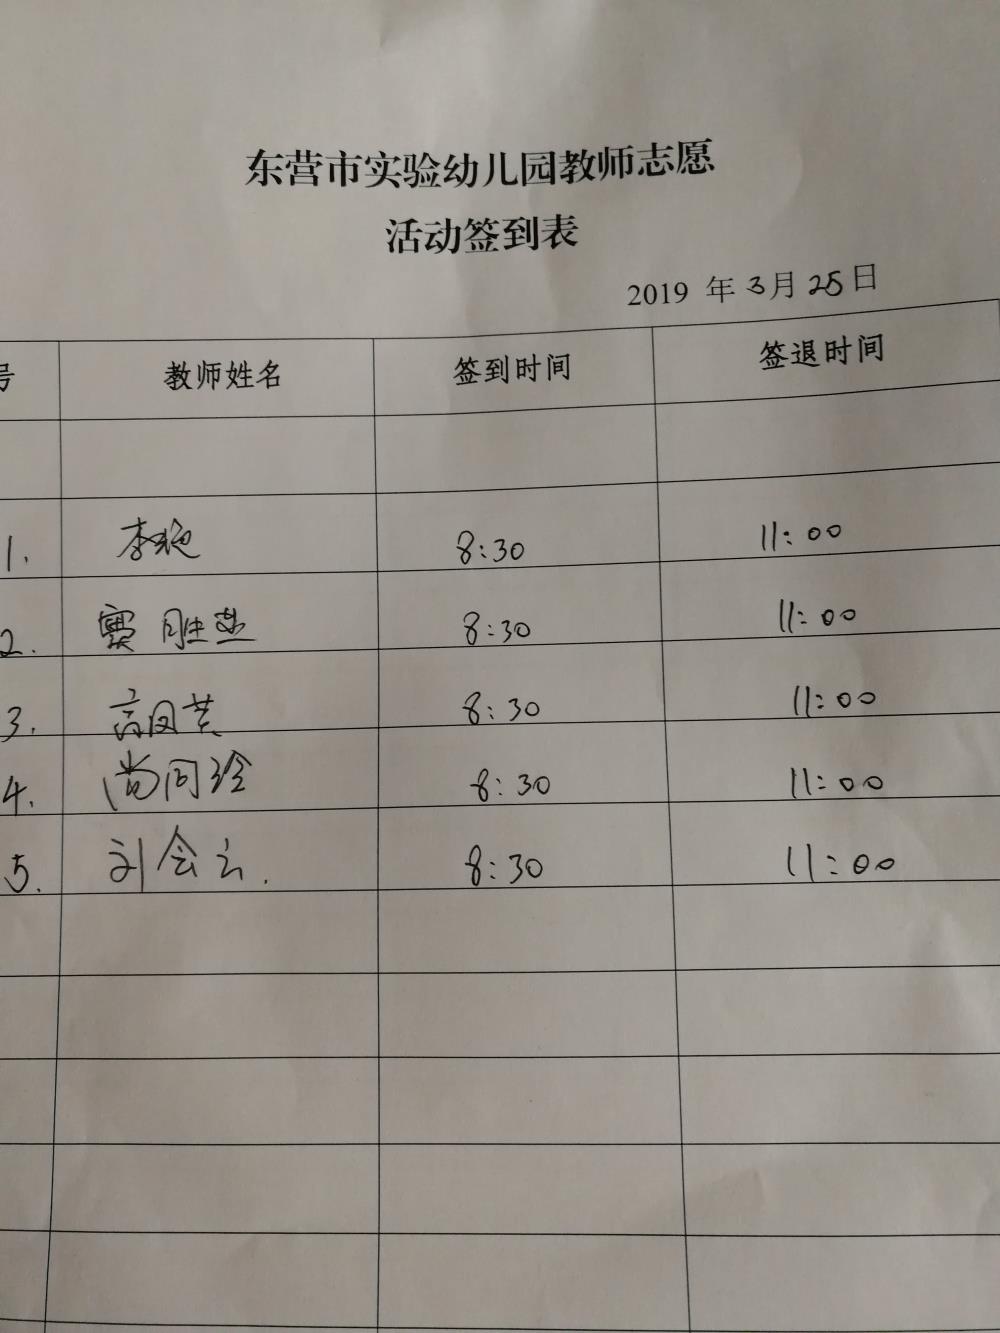 东营市实验幼儿园教师志愿
活动签到表
2019 年 3月 25日
号 教师姓名 签到时间 签退时间
1. 李艳 8:30 11:00
2. 窦胜燕 8:30 11:00
3. 高凤英 8:30 11:00
4. 尚同玲 8:30 11:00
5. 刘会云. 8:30 11:00